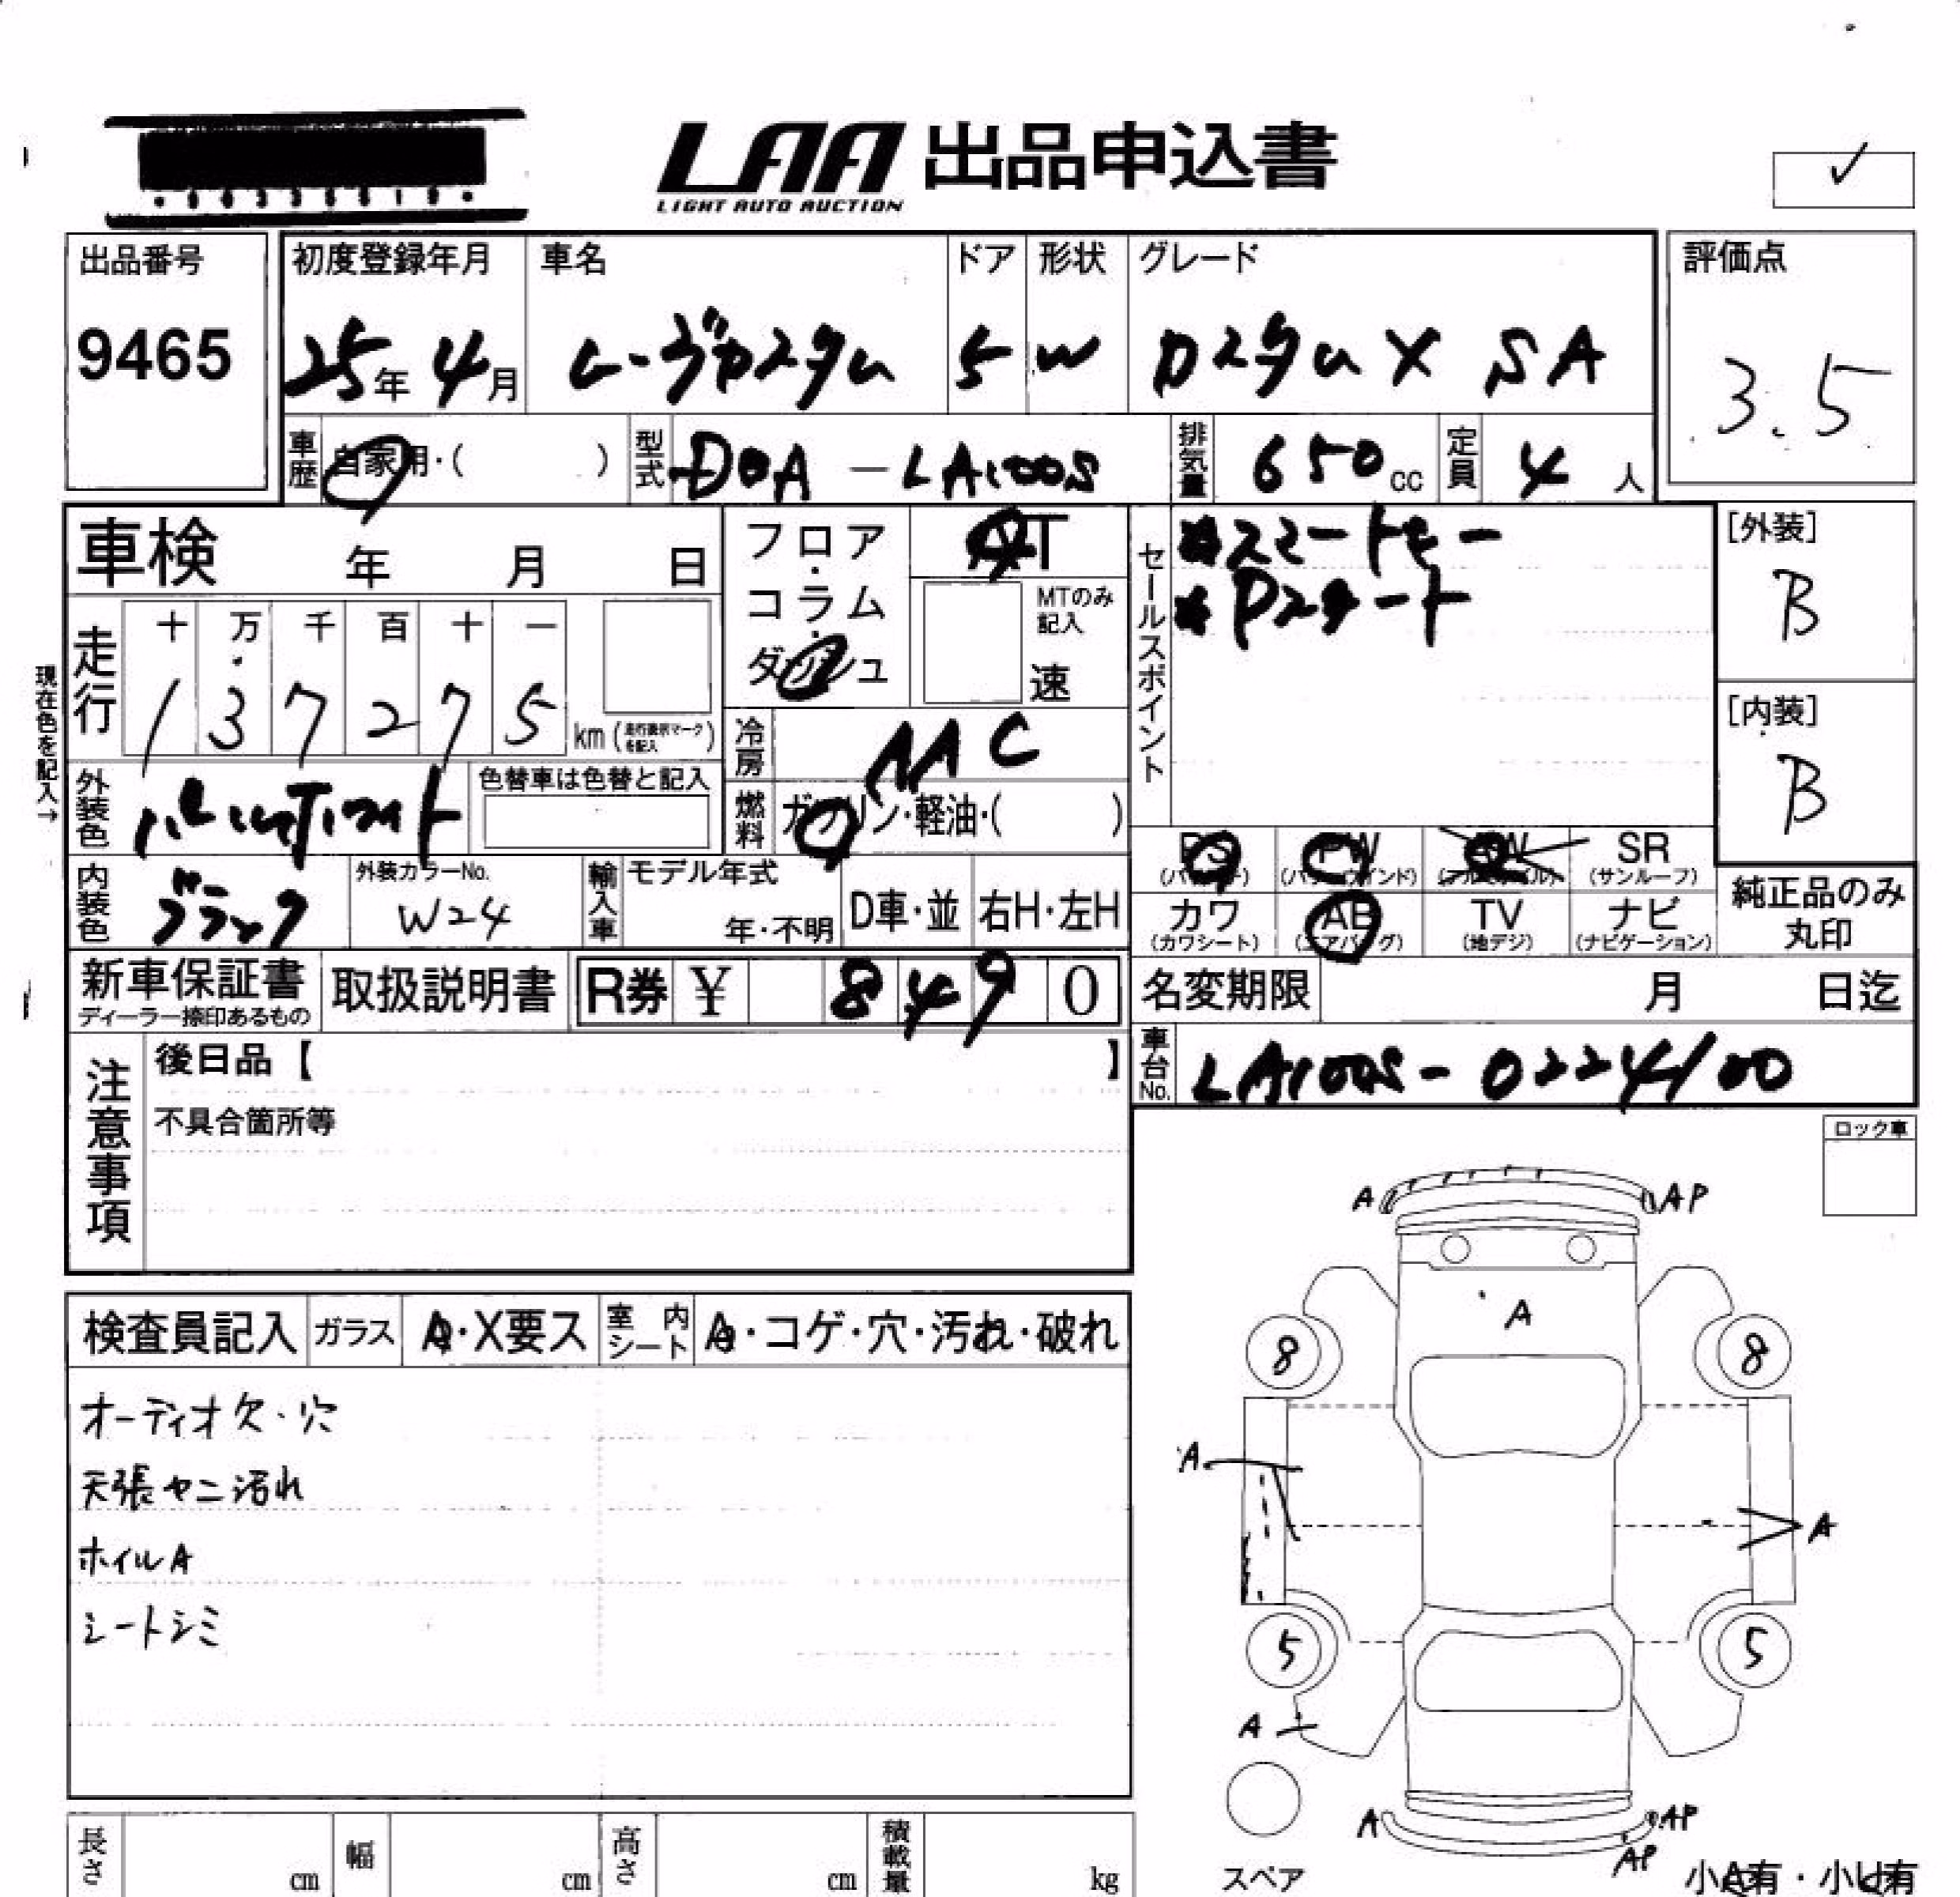 LAA 出品申込書
LIGHT AUTO AUCTION
✓
出品番号
9465
初度登録年月
25年4月
車名
ムーヴカスタム
ドア
5
形状
W
グレード
カスタム X SA
評価点
3.5
車歴 自家用・( )
型式 DBA-LA100S
排気量 650cc
定員 4人
車検 年 月 日
フロア・コラム・ダッシュ
AT
MTのみ記入
速
セールスポイント
*スマートキー
*Pスタート
[外装]
B
[内装]
B
現在色を記入→
走行
十 万 千 百 十 一
1 3 7 2 7 5 km (走行表示マークを記入)
冷房 AAC
外装色 パールホワイト
色替車は色替と記入
燃料 ガソリン・軽油・( )
PS PW AW SR
(パワステ) (パワーウインド) (アルミホイル) (サンルーフ)
カワ AB TV ナビ
(カワシート) (エアバッグ) (地デジ) (ナビゲーション)
純正品のみ
丸印
内装色 ブラック
外装カラーNo.
W24
輸入車
モデル年式
年・不明
D車・並
右H・左H
新車保証書
ディーラー捺印あるもの
取扱説明書
R券 ¥ 8 4 9 0
名変期限 月 日迄
車台No. LA100S-0224100
注意事項
後日品【 】
不具合箇所等
ロック車
検査員記入 ガラス A・X要ス 室内シート A・コゲ・穴・汚れ・破れ
オーディオ欠・穴
天張ヤニ汚れ
ホイルA
シートシミ
A AP
A
8 8
A A
5 5
A
A AP
AP
スペア
小A有・小U有
長さ cm 幅 cm 高さ cm 積載量 kg